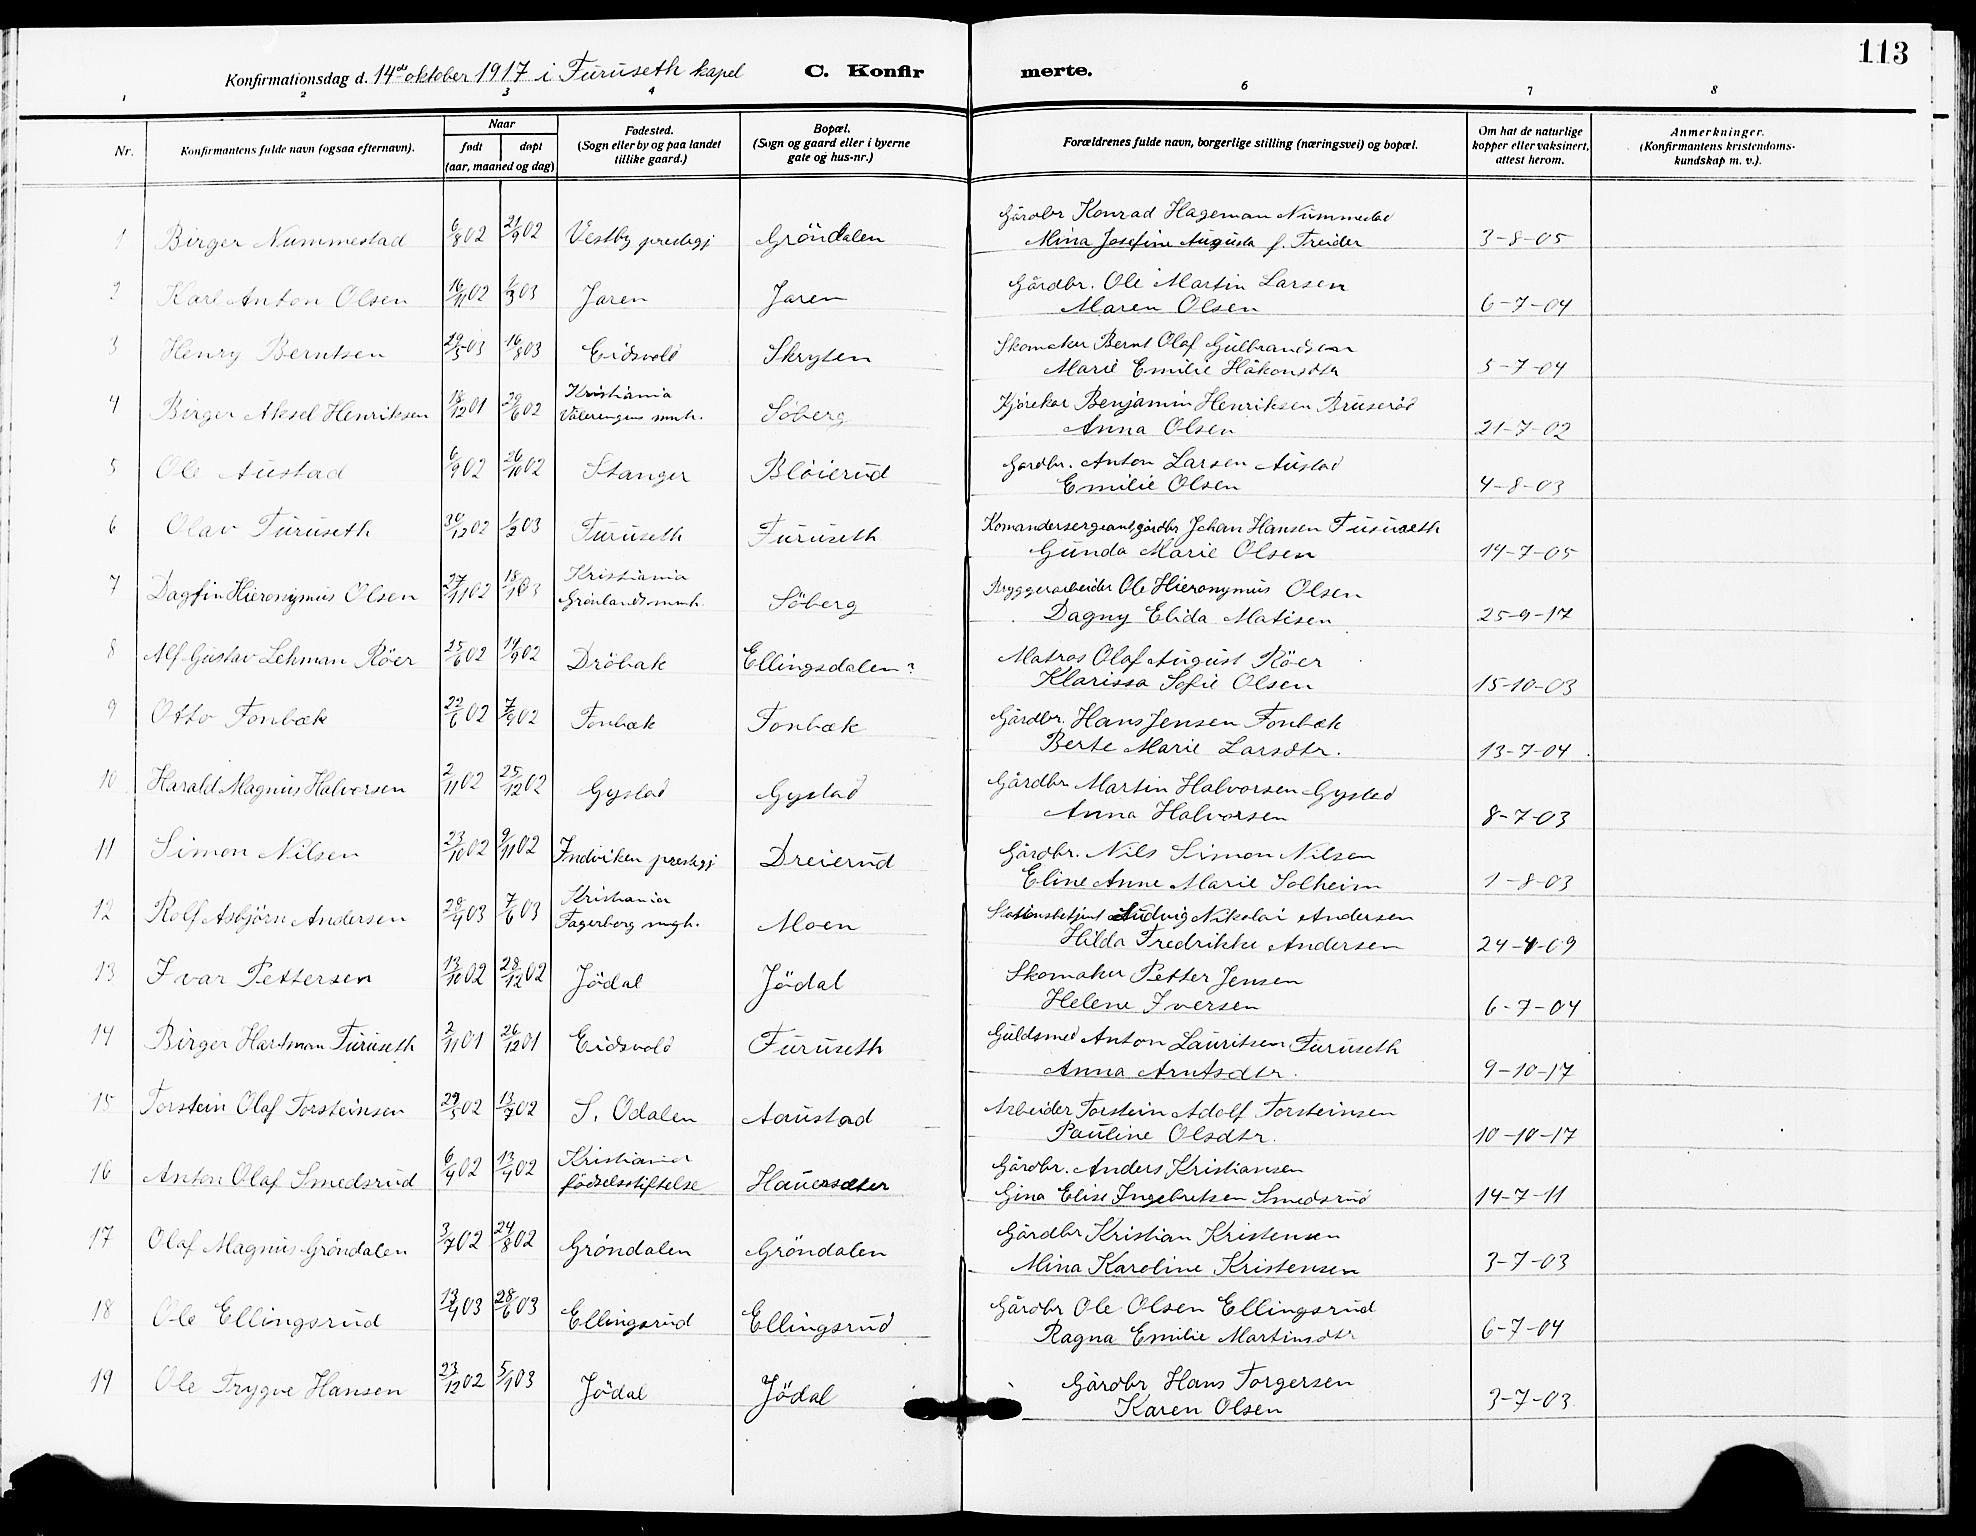 113
Konfirmationsdag d. 14de oktober 1917 i Furuseth kapel C. Konfir merte.
1 2 3 4 6 7 8
Nr. Konfirmantens fulde navn (ogsaa efternavn). Naar født døpt (aar, maaned og dag) Fødested. (Sogn eller by og paa landet tillike gaard.) Bopæl. (Sogn og gaard eller i byerne gate og hus-nr.) Forældrenes fulde navn, borgerlige stilling (næringsvei) og bopæl. Om hat de naturlige kopper eller vaksinert, attest herom. Anmerkninger. (Konfirmantens kristendoms-kundskap m. v.).
1 Birger Nummestad 6/8 02 21/9 02 Vestby prestegj Gröndalen Gårdbr Konrad Hageman Nummestad
Mina Josefine Augusta f. Treider 3-8-05
2 Karl Anton Olsen 16/11 02 1/3 03 Jaren Jaren Gårdbr. Ole Martin Larsen
Maren Olsen 6-7-04
3 Henry Berntsen 29/5 03 16/8 03 Eidsvold Skrysen Skomaker Bernt Olaf Gulbrandsen
Marie Emilie Håkonsdtr 5-7-04
4 Birger Aksel Henriksen 18/12 01 29/6 02 Kristiania Vålerengens mnh. Söberg Kjörekar Benjamin Henriksen Bruseröd
Anna Olsen 21-7-02
5 Ole Austad 6/9 02 26/10 02 Stanger Blöierud Gardbr. Anton Larsen Austad
Emilie Olsen 4-8-03
6 Olav Furuseth 30/12 02 1/2 03 Furuseth Furuseth Komandersergeant, gårdbr Johan Hansen Furuseth
Gunda Marie Olsen 14-7-05
7 Dagfin Hieronymus Olsen 27/11 02 18/1 03 Kristiania Grönlands mnh. Söberg Bryggerarbeider Ole Hieronymus Olsen
Dagny Elida Matisen 25-9-17
8 Alf Gustav Lehman Röer 25/6 02 14/9 02 Dröbak Ellingsdalen? Matros Olaf August Röer
Klarissa Sofie Olsen 15-10-03
9 Otto Tonbæk 22/6 02 7/9 02 Tonbæk Tonbæk Gårdbr. Hans Jensen Tonbæk
Berte Marie Larsdtr. 13-7-04
10 Harald Magnus Halvorsen 2/11 02 25/12 02 Gystad Gystad Gårdbr Martin Halvorsen Gystad
Anna Halvorsen 8-7-03
11 Simon Nilsen 23/10 02 9/11 02 Indviken prestegj Dreierud Gårdbr. Nils Simon Nilsen
Eline Anne Marie Solheim 1-8-03
12 Rolf Asbjörn Andersen 20/4 03 7/6 03 Kristiania Fagerborg mgh. Moen Ludvig Nikolai Andersen
Hilda Fredrikke Andersen 24-4-09
13 Ivar Pettersen 13/10 02 28/12 02 Jödal Jödal Skomaker Petter Jensen
Helene Iversen 6-7-04
14 Birger Hartman Furuseth 2/11 01 26/12 01 Eidsvold Furuseth Guldsmed Anton Lauritsen Furuseth
Anna Arntsdtr. 9-10-17
15 Torstein Olaf Torsteinsen 29/5 02 13/7 02 S. Odalen Aaustad Arbeider Torstein Adolf Torsteinsen
Pauline Olsdtr. 10-10-17
16 Anton Olaf Smedsrud 6/4 02 13/4 02 Kristiania födselsstiftelse Hauersæter Gårdbr. Anders Kristiansen
Gina Elise Ingebretsen Smedsrud 14-7-11
17 Olaf Magnus Gröndalen 3/7 02 24/8 02 Gröndalen Gröndalen Gårdbr Kristian Kristensen
Mina Karoline Kristensen 3-7-03
18 Ole Ellingsrud 13/4 03 28/6 03 Ellingsrud Ellingsrud Gårdbr Ole Olsen Ellingsrud
Ragna Emilie Martinsdtr 6-7-04
19 Ole Trygve Hansen 23/12 02 5/1 03 Jödal Jödal Gårdbr Hans Torgersen
Karen Olsen 3-7-03